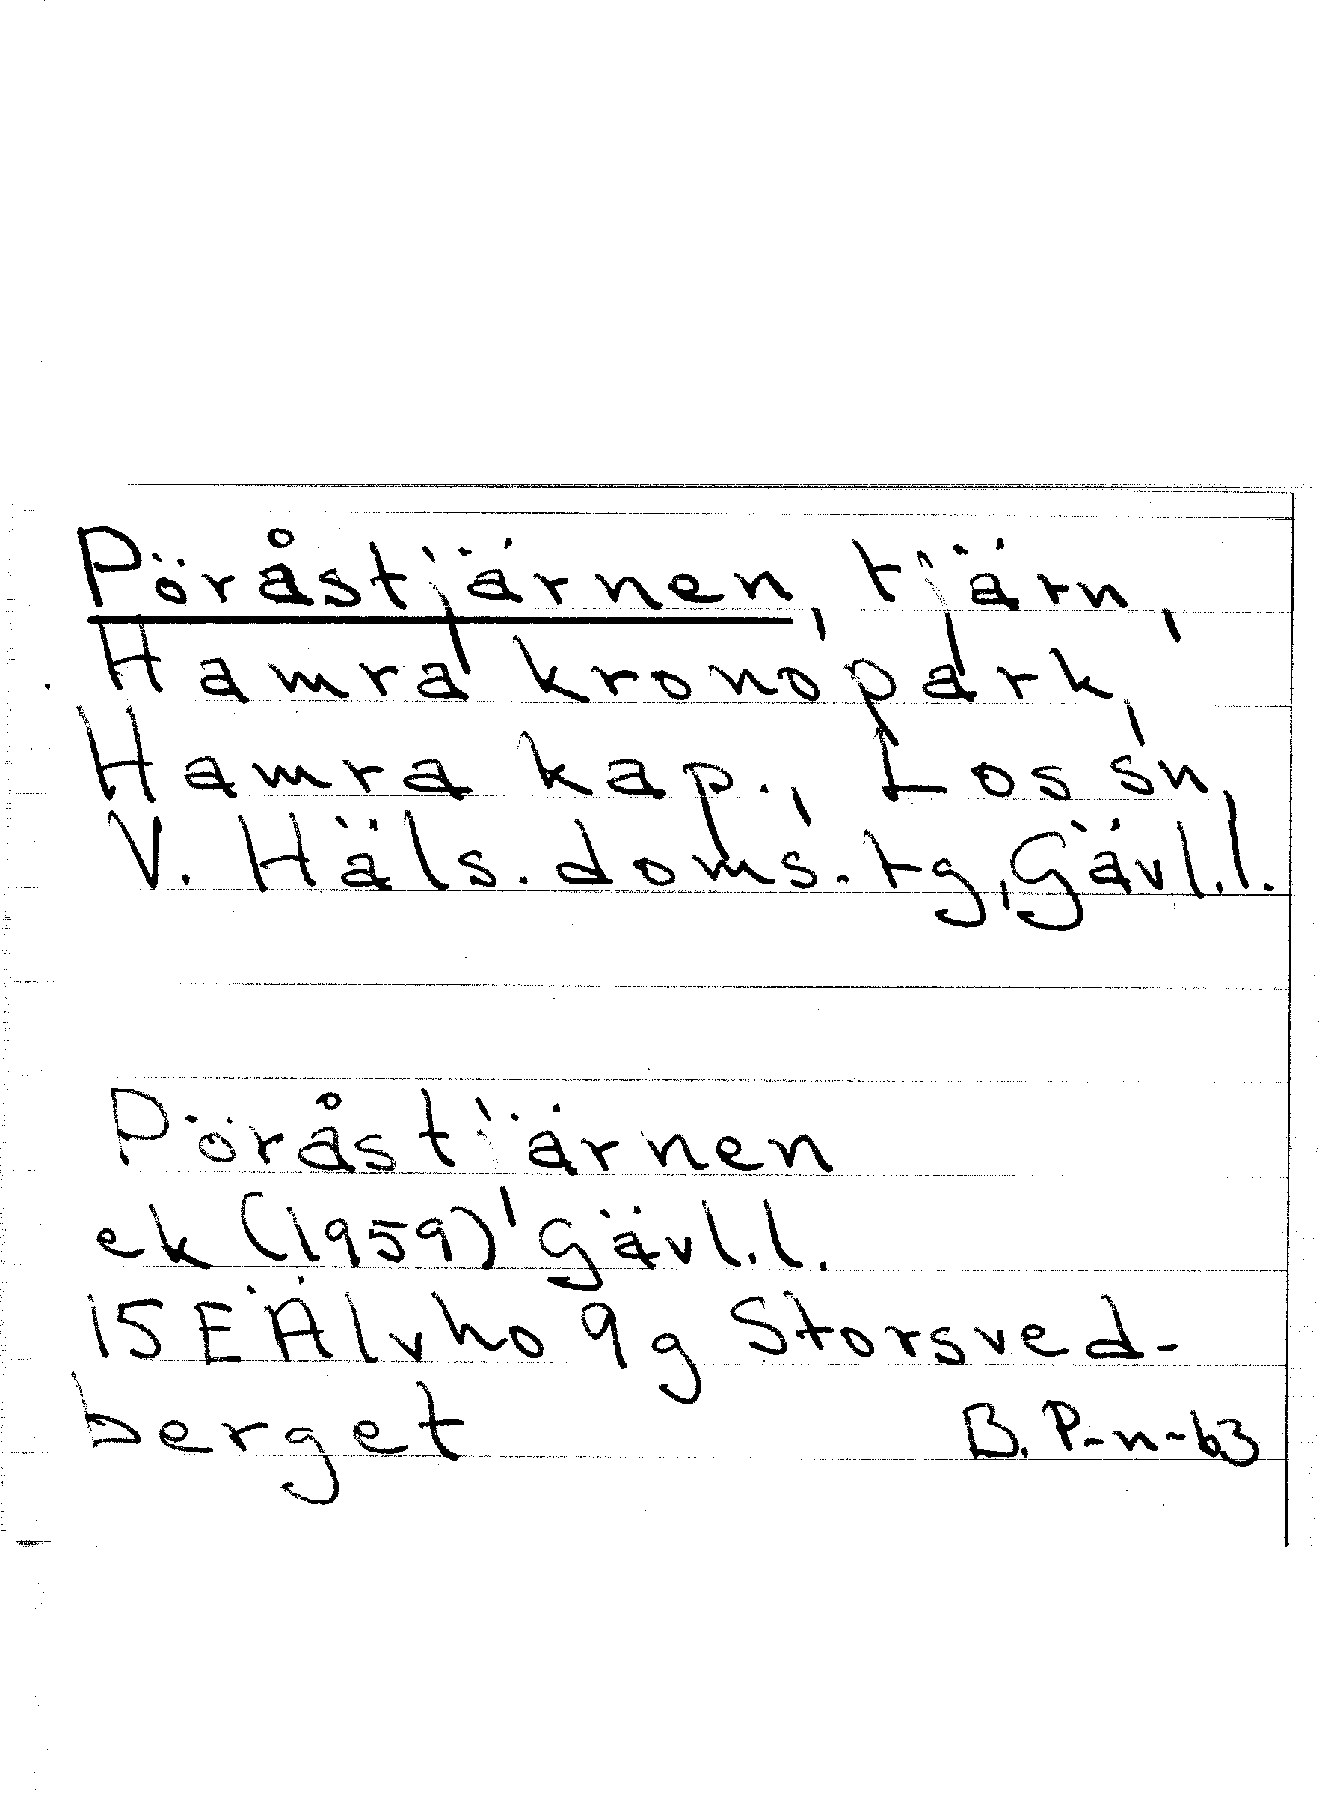 Pöråstjärnen, tjärn,
Hamra kronopark,
Hamra kap., Los sn,
V. Häls. doms. tg, Gävl.l.
Pöråstjärnen
ek (1959) Gävl.l.
15 E Älvho 9g Storsved-
berget
B. P-n-63